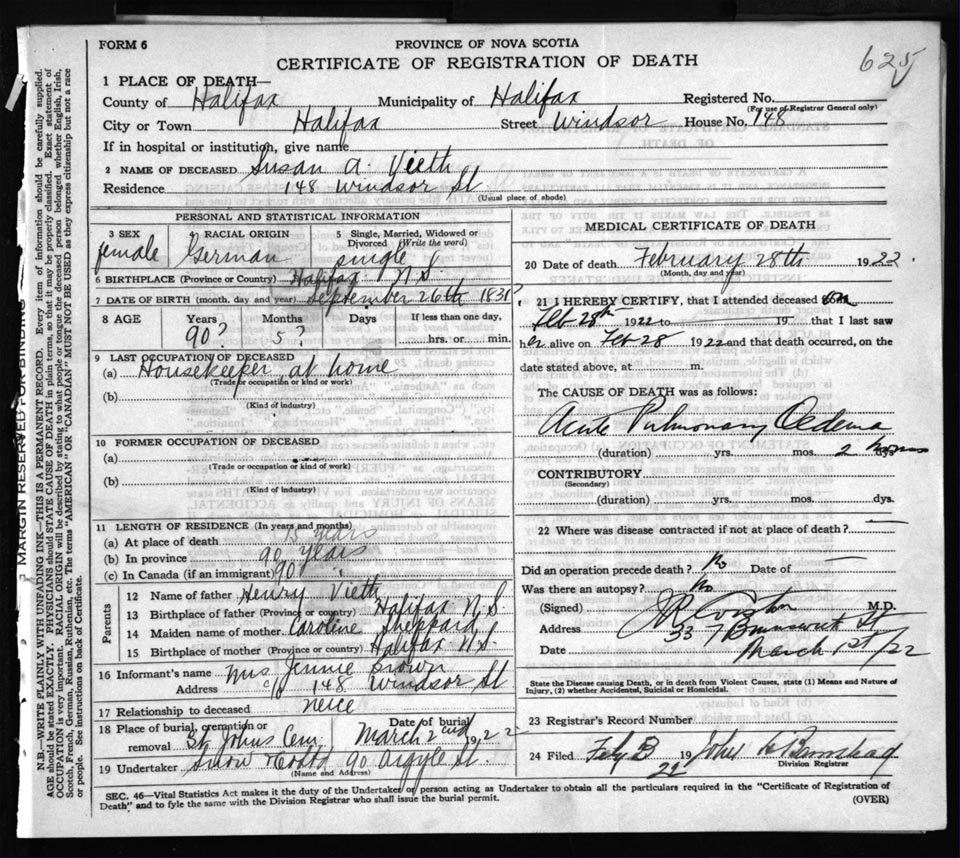 FORM 6
PROVINCE OF NOVA SCOTIA
CERTIFICATE OF REGISTRATION OF DEATH
625
1 PLACE OF DEATH—
County of Halifax Municipality of Halifax Registered No.
(For use of Registrar General only)
City or Town Halifax Street Windsor House No. 148
If in hospital or institution, give name
2 NAME OF DECEASED Susan A. Vieth
Residence 148 Windsor St
(Usual place of abode)
PERSONAL AND STATISTICAL INFORMATION
3 SEX female
RACIAL ORIGIN German
5 Single, Married, Widowed or Divorced (Write the word) single
6 BIRTHPLACE (Province or Country) Halifax N.S.
7 DATE OF BIRTH (month, day and year) September 26th 1831?
8 AGE Years Months Days If less than one day,
90? 5? hrs. or min.
9 LAST OCCUPATION OF DECEASED
(a) Housekeeper at home
(Trade or occupation or kind or work)
(b)
(Kind of industry)
10 FORMER OCCUPATION OF DECEASED
(a)
(Trade or occupation or kind or work)
(b)
(Kind of industry)
11 LENGTH OF RESIDENCE (In years and months)
(a) At place of death 15 years
(b) In province 90 years
(c) In Canada (if an immigrant) 90 "
Parents
12 Name of father Henry Vieth
13 Birthplace of father (Province or country) Halifax N.S
14 Maiden name of mother Caroline Sheppard
15 Birthplace of mother (Province or country) Halifax N.S.
16 Informant's name Mrs Jennie Brown
Address c/o 148 Windsor St
17 Relationship to deceased neice
18 Place of burial, cremation or removal St Johns Cem Date of burial March 2nd 1922
19 Undertaker Snow & Co Ltd 90 Argyle St.
(Name and Address)
MEDICAL CERTIFICATE OF DEATH
20 Date of death February 28th 1922.
(Month, day and year)
21 I HEREBY CERTIFY, that I attended deceased
Feb 28th 1922 to 19 that I last saw
her alive on Feb 28 1922 and that death occurred, on the
date stated above, at m.
The CAUSE OF DEATH was as follows:
Acute Pulmonary Oedema
(duration) yrs. mos. 2 hours
CONTRIBUTORY
(Secondary)
(duration) yrs. mos. dys.
22 Where was disease contracted if not at place of death?
Did an operation precede death? No Date of
Was there an autopsy? No
(Signed) M.D.
Address 33 Brunswick St
Date March 1st/22
State the Disease causing Death, or in death from Violent Causes, state (1) Means and Nature of
Injury, (2) whether Accidental, Suicidal or Homicidal.
23 Registrar's Record Number
24 Filed 19 22 John
Division Registrar
SEC. 46—Vital Statistics Act makes it the duty of the Undertaker or person acting as Undertaker to obtain all the particulars required in the "Certificate of Registration of
Death" and to fyle the same with the Division Registrar who shall issue the burial permit. (OVER)
MARGIN RESERVED FOR BINDING
N.B.—WRITE PLAINLY WITH UNFADING INK—THIS IS A PERMANENT RECORD. Every item of information should be carefully supplied.
AGE should be stated EXACTLY. PHYSICIANS should STATE CAUSE OF DEATH in plain terms, so that it may be properly classified. Exact statement of
OCCUPATION is very important. RACIAL ORIGIN will be described by stating to what people or tongue the deceased person belonged, whether English, Irish,
Scotch, French, German, Russian, Ruthenian, etc. The terms "AMERICAN" OR "CANADIAN" MUST NOT BE USED as they express citizenship but not a race
or people. See instructions on back of Certificate.